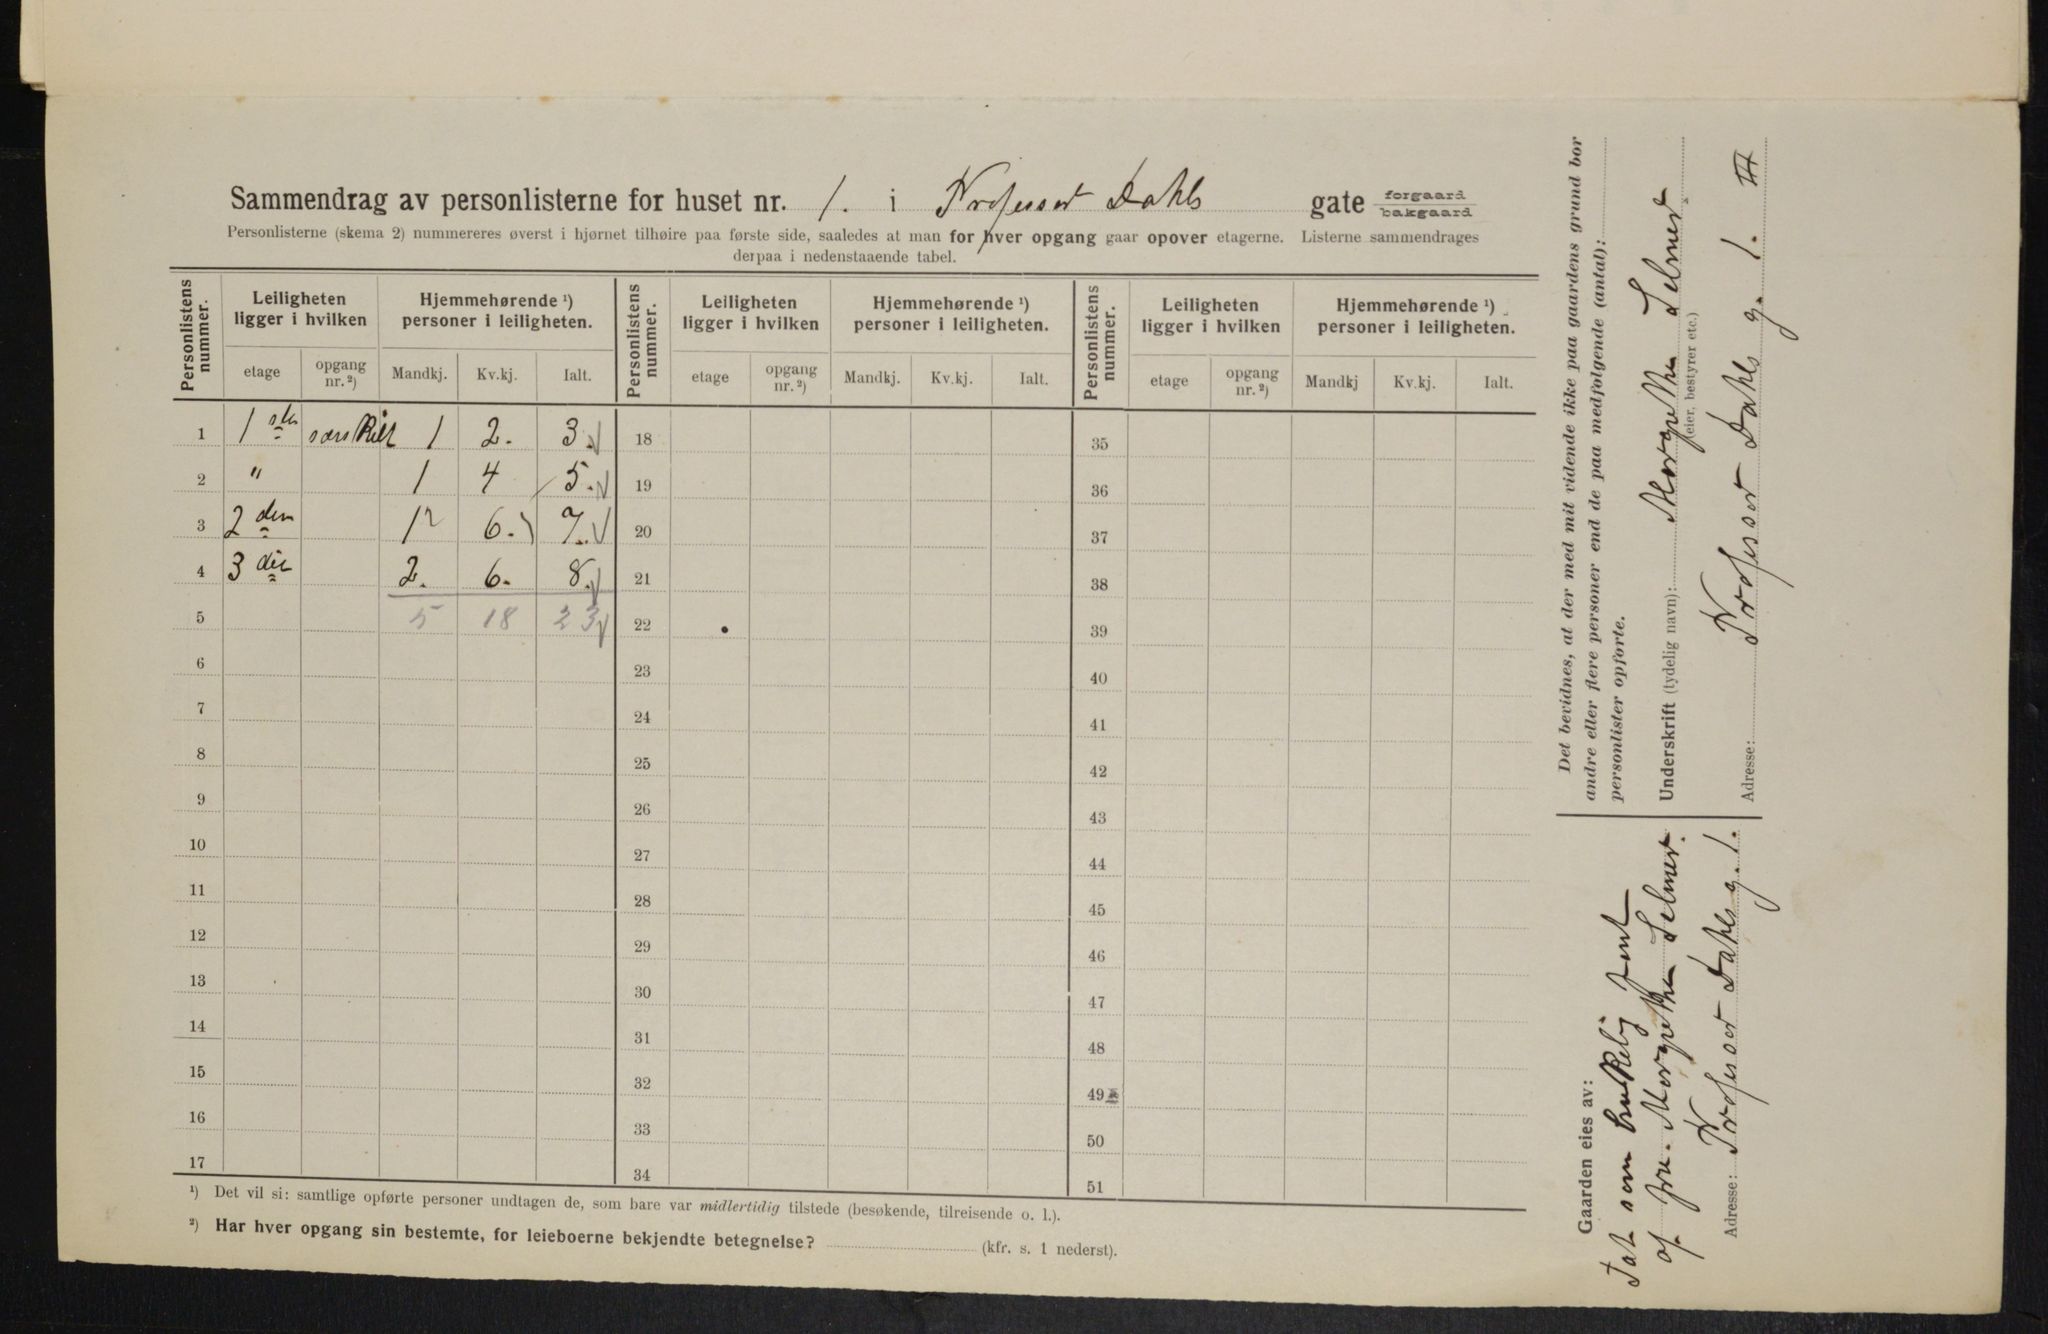 Sammendrag av personlisterne for huset nr. 1. i Professor Dahls gate forgaard bakgaard
Personlisterne (skema 2) nummereres øverst i hjørnet tilhøire paa første side, saaledes at man for hver opgang gaar opover etagerne. Listerne sammendrages
derpaa i nedenstaaende tabel.
Personlistens nummer. Leiligheten ligger i hvilken Hjemmehørende ¹) personer i leiligheten. Personlistens nummer. Leiligheten ligger i hvilken Hjemmehørende ¹) personer i leiligheten. Personlistens nummer. Leiligheten ligger i hvilken Hjemmehørende ¹) personer i leiligheten.
etage opgang nr. ²) Mandkj. Kv.kj. Ialt. etage opgang nr. ²) Mandkj. Kv.kj. Ialt. etage opgang nr. ²) Mandkj Kv.kj. Ialt.
1 1 ste særskilt 1 2. 3. 18 35
2 " 1 4 5. 19 36
3 2 den 1 6. 7. 20 37
4 3 die 2. 6. 8. 21 38
5 5 18 23 22 39
6 23 40
7 24 41
8 25 42
9 26 43
10 27 44
11 28 45
12 29 46
13 30 47
14 31 48
15 32 49
16 33 50
17 34 51
¹) Det vil si: samtlige opførte personer undtagen de, som bare var midlertidig tilstede (besøkende, tilreisende o. l.).
²) Har hver opgang sin bestemte, for leieboerne bekjendte betegnelse? (kfr. s. 1 nederst).
Det bevidnes, at der med mit vidende ikke paa gaardens grund bor
andre eller flere personer end de paa medfølgende (antal):
personlister opførte.
Underskrift (tydelig navn): Margrethe Selmer
(eier, bestyrer etc.)
Adresse: Professor Dahls g. 1. II
Gaarden eies av:
som
af fru. Margrethe Selmer.
Adresse: Professor Dahls g. 1.